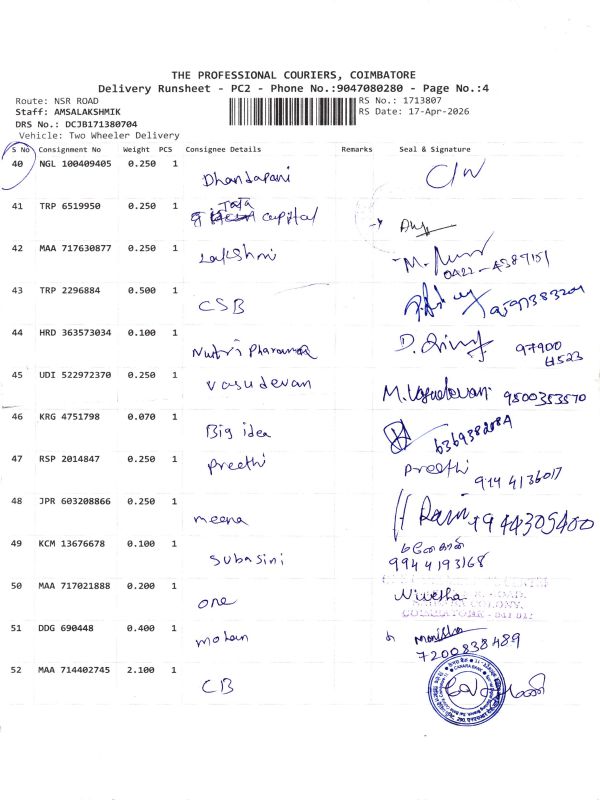 THE PROFESSIONAL COURIERS, COIMBATORE
Delivery Runsheet - PC2 - Phone No.:9047080280 - Page No.:4
Route: NSR ROAD
Staff: AMSALAKSHMIK
DRS No.: DCJB171380704
Vehicle: Two Wheeler Delivery
RS No.: 1713807
RS Date: 17-Apr-2026
S No Consignment No Weight PCS Consignee Details Remarks Seal & Signature
40 NGL 100409405 0.250 1 Dhandapani
41 TRP 6519950 0.250 1 Tata capital
42 MAA 717630877 0.250 1 Lakshmi
0422-4387151
43 TRP 2296884 0.500 1 CSB
44 HRD 363573034 0.100 1 Nutri
97900
45 UDI 522972370 0.250 1 Vasudevan M. Vasudevan 9500353570
46 KRG 4751798 0.070 1 Big idea
47 RSP 2014847 0.250 1 Preethi Preethi
9144136017
48 JPR 603208866 0.250 1 meena
9944305400
49 KCM 13676678 0.100 1 Subasini
9944193168
50 MAA 717021888 0.200 1 one Nivetha
51 DDG 690448 0.400 1 mohan
7200838489
52 MAA 714402745 2.100 1 CB
CANARA BANK